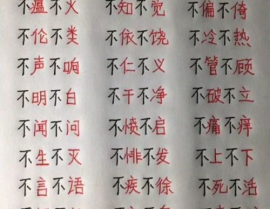 不温不火 不知不觉 不偏不倚
不伦不类 不依不饶 不冷不热
不声不响 不仁不义 不管不顾
不明不白 不干不净 不破不立
不闻不问 不愤不启 不痛不痒
不生不灭 不悱不发 不上不下
不言不語 不疾不徐 不死不活